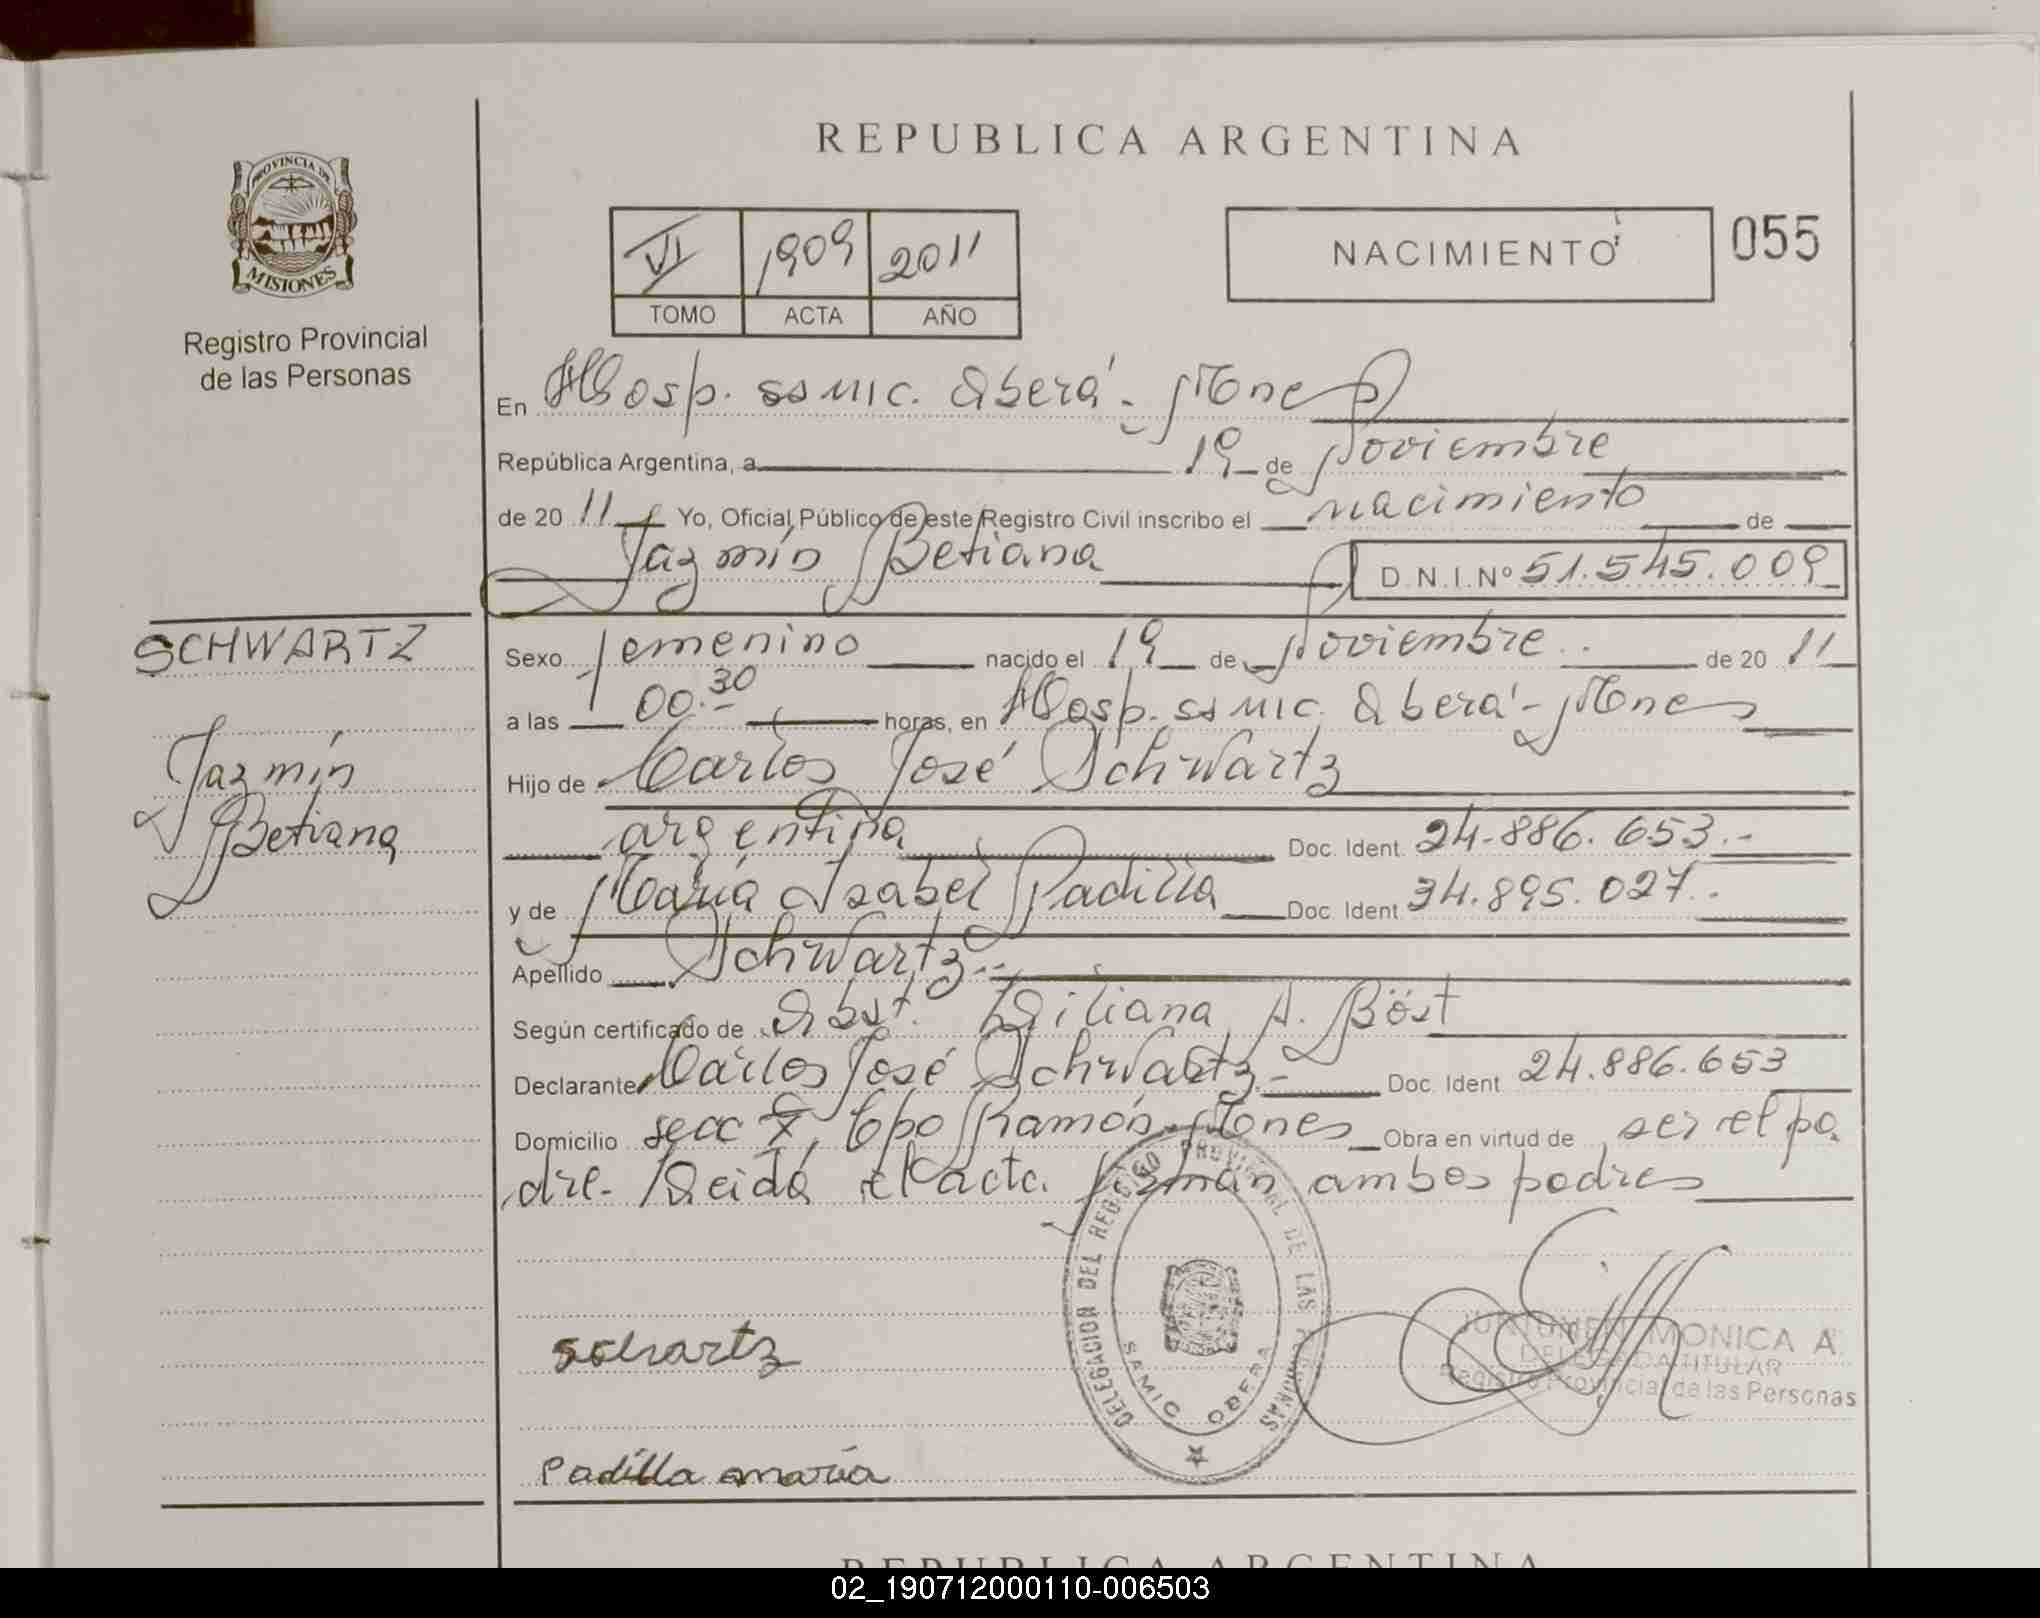 REPUBLICA ARGENTINA
PROVINCIA DE
MISIONES
Registro Provincial
de las Personas
VI 1909 2011
TOMO ACTA AÑO
NACIMIENTO 055
En Hosp. SAMIC. Oberá - Mones
República Argentina, a 19 de Noviembre
de 20 11 Yo, Oficial Público de este Registro Civil inscribo el nacimiento de
Jazmín Betiana D.N.I.Nº 51.545.009
SCHWARTZ
Jazmín
Betiana
Sexo femenino nacido el 19 de Noviembre de 20 11
a las 00.30 horas, en Hosp. SAMIC. Oberá - Mones
Hijo de Carlos José Schwartz
argentina Doc. Ident. 24.886.653.-
y de María Isabel Padilla Doc. Ident 34.895.027.-
Apellido Schwartz.-
Según certificado de Obst. Liliana A. Böst
Declarante Carlos José Schwartz.- Doc. Ident 24.886.653
Domicilio secc 7, Cpo Ramón - Mones Obra en virtud de ser el pa
dre. Leida el acta. firman ambos padres
DELEGACION DEL REGISTRO PROVINCIAL DE LAS PERSONAS
SAMIC OBERA
schartz
MONICA A
DELEGADA TITULAR
Registro Provincial de las Personas
Padilla maría
REPUBLICA ARGENTINA
02_190712000110-006503